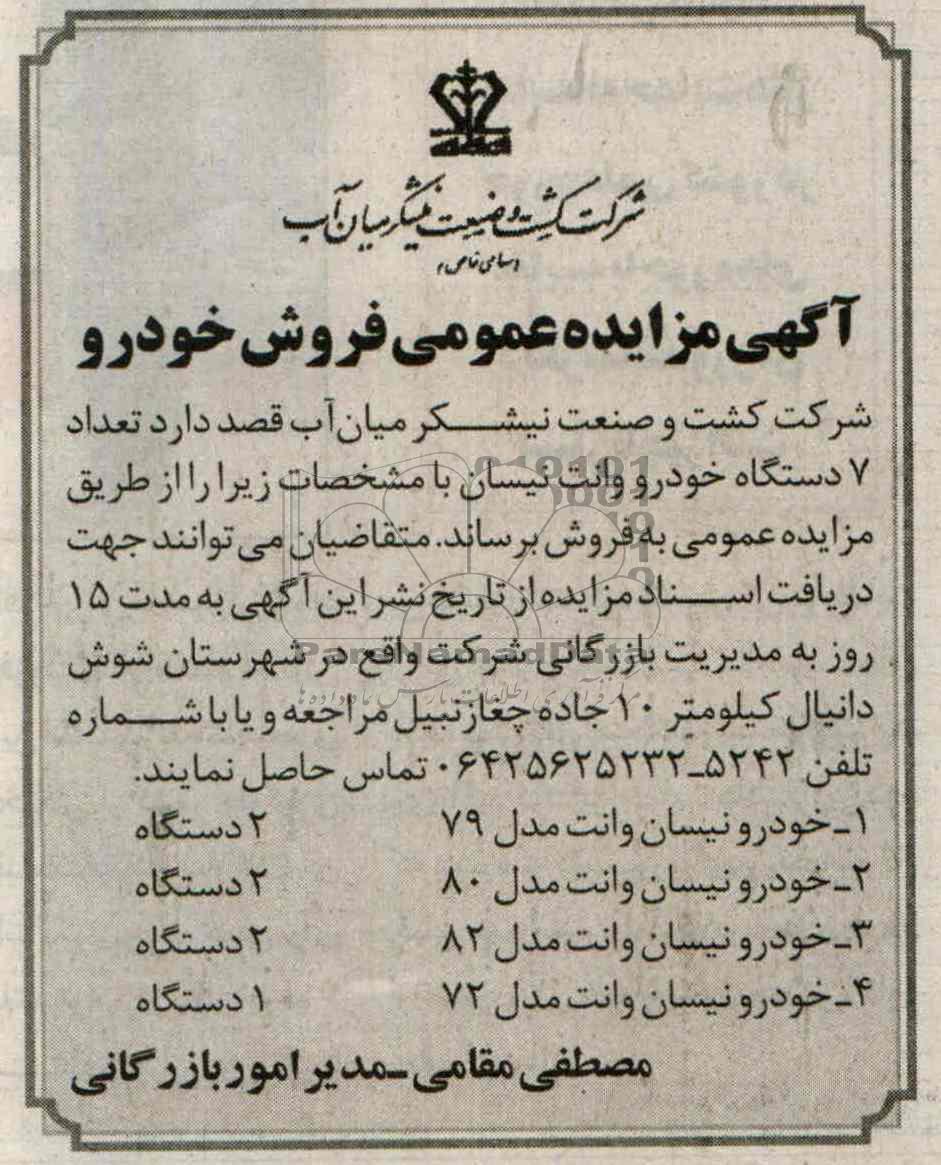 شرکت کشت و صنعت نیشکر میان‌آب
(سهامی خاص)
آگهی مزایده عمومی فروش خودرو
شرکت کشت و صنعت نیشکر میان‌آب قصد دارد تعداد
۷ دستگاه خودرو وانت نیسان با مشخصات زیر را از طریق
مزایده عمومی به فروش برساند. متقاضیان می توانند جهت
دریافت اسناد مزایده از تاریخ نشر این آگهی به مدت ۱۵
روز به مدیریت بازرگانی شرکت واقع در شهرستان شوش
دانیال کیلومتر ۱۰ جاده چغازنبیل مراجعه و یا با شماره
تلفن ۵۲۴۲ـ۰۶۴۲۵۶۲۵۲۳۲ تماس حاصل نمایند.
۱ـ خودرو نیسان وانت مدل ۷۹ ۲ دستگاه
۲ـ خودرو نیسان وانت مدل ۸۰ ۲ دستگاه
۳ـ خودرو نیسان وانت مدل ۸۲ ۲ دستگاه
۴ـ خودرو نیسان وانت مدل ۷۲ ۱ دستگاه
مصطفی مقامی ـ مدیر امور بازرگانی
ParsNamadData